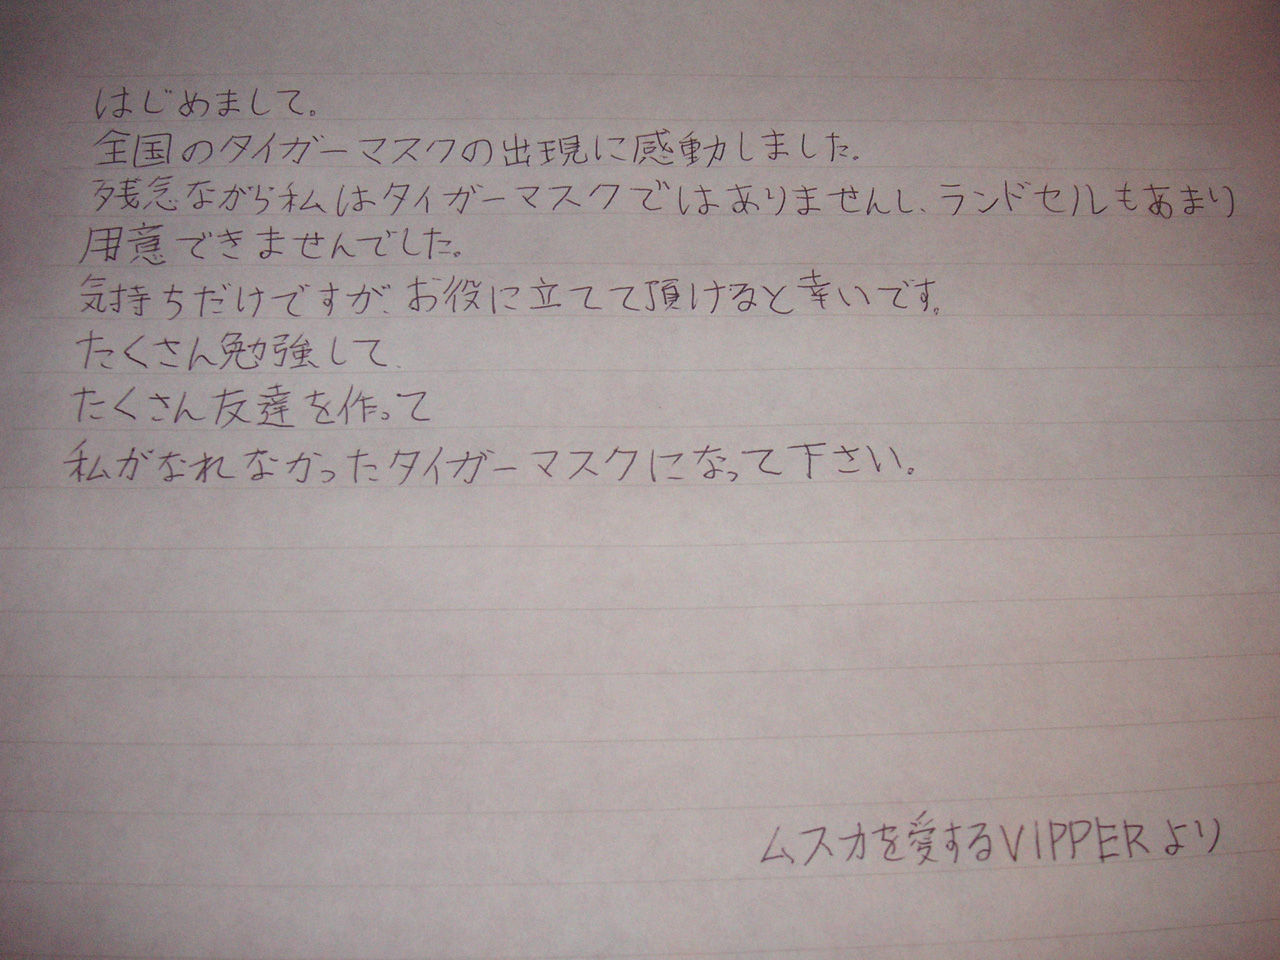 はじめまして。
全国のタイガーマスクの出現に感動しました。
残念ながら私はタイガーマスクではありませんし、ランドセルもあまり
用意できませんでした。
気持ちだけですが、お役に立てて頂けると幸いです。
たくさん勉強して、
たくさん友達を作って
私がなれなかったタイガーマスクになって下さい。
ムスカを愛するVIPPERより